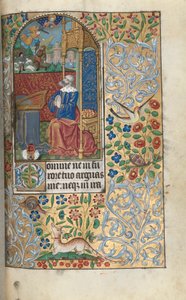 Domine ne in fu
rore tuo arguas
me: neqz in ira